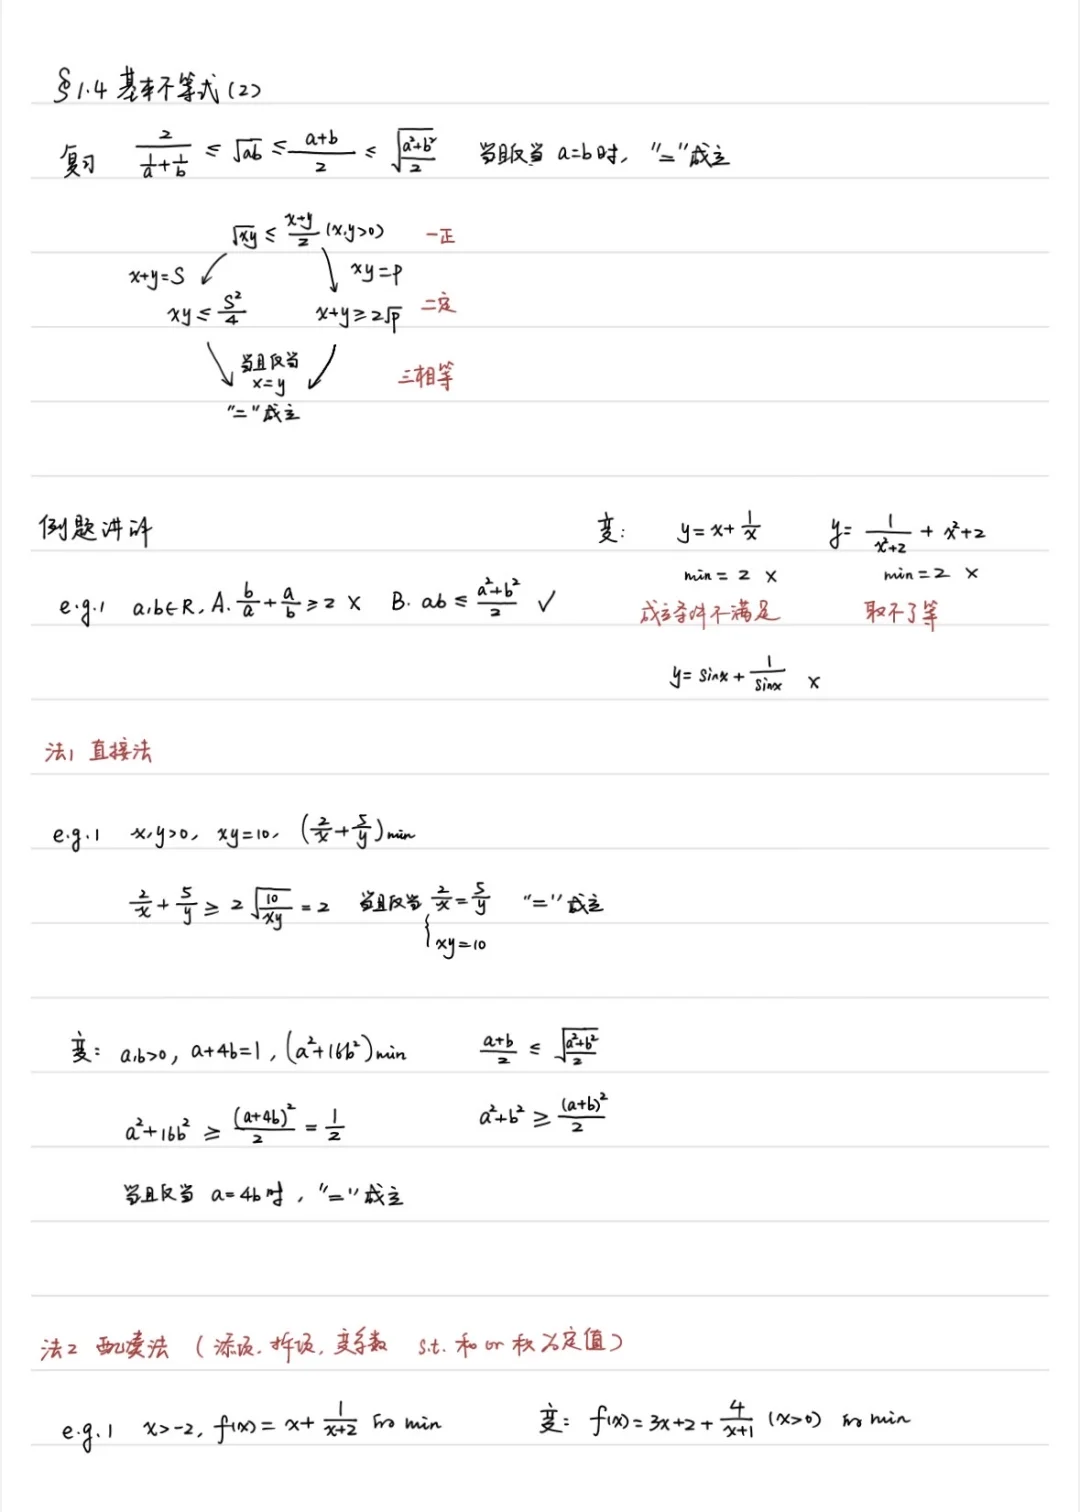 §1.4 基本不等式(2)
复习 2/(1/a+1/b) ≤ √ab ≤ (a+b)/2 ≤ √((a²+b²)/2) 当且仅当 a=b时, "="成立
√xy ≤ (x+y)/2 (x,y>0) 一正
x+y=S xy=p
xy ≤ S²/4 x+y≥2√p 二定
当且仅当
x=y 三相等
"="成立
例题讲评 变: y=x+1/x y=1/(x²+2)+x²+2
min=2 × min=2 ×
e.g.1 a,b∈R, A. b/a+a/b≥2 × B. ab≤(a²+b²)/2 ✓ 成立条件不满足 取不了等
y=sinx+1/sinx ×
法1 直接法
e.g.1 x,y>0, xy=10, (2/x+5/y)min
2/x+5/y ≥ 2√(10/xy) =2 当且仅当 {2/x=5/y "="成立
xy=10
变: a,b>0, a+4b=1, (a²+16b²)min (a+b)/2 ≤ √((a²+b²)/2)
a²+16b² ≥ (a+4b)²/2 = 1/2 a²+b² ≥ (a+b)²/2
当且仅当 a=4b时, "="成立
法2 配凑法 (添项, 拆项, 变系数 s.t. 和 or 积为定值)
e.g.1 x>-2, f(x)=x+1/(x+2) min 变: f(x)=3x+2+4/(x+1) (x>0) min